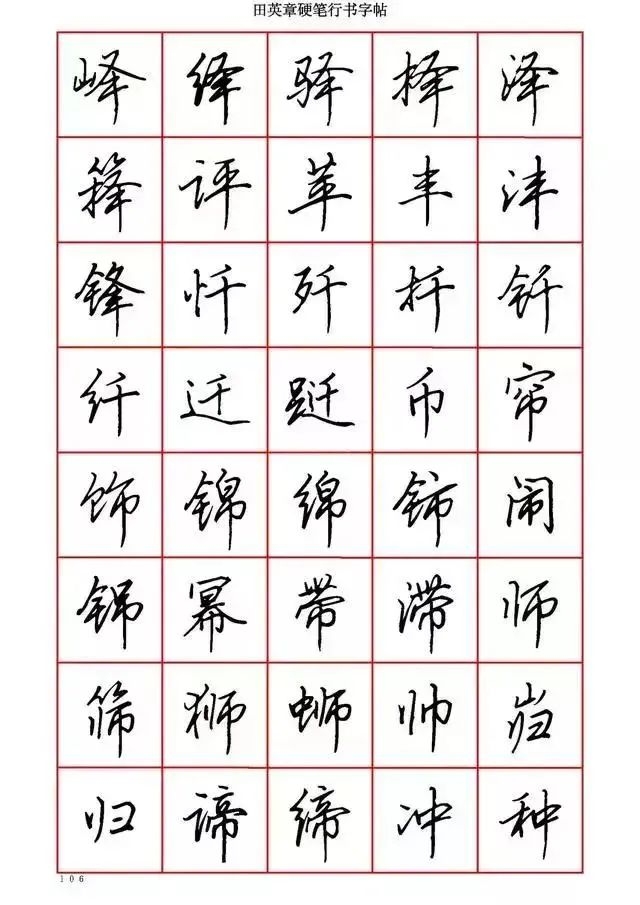 田英章硬笔行书字帖
峄 绎 驿 择 泽
箨 评 苹 丰 沣
锋 忏 歼 扦 钎
纤 迁 跹 币 帘
饰 锦 绵 铈 闹
幂 带 滞 师
筛 狮 蛳 帅 岿
归 谛 缔 冲 种
106